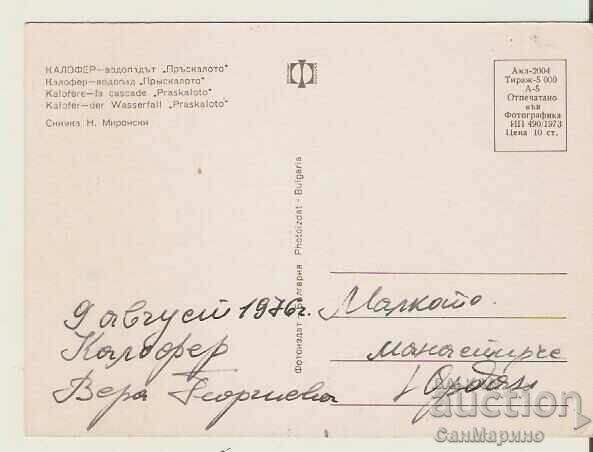 КАЛОФЕР—водопадът „Пръскалото“
Калофер—водопад „Прыскалото“
Kalofère—la cascade „Praskaloto“
Kalofer—der Wasserfall „Praskaloto“
Снимка Н. Миронски
Акл-2004
Тираж-5 000
А-5
Отпечатано
във
Фотографика
ИП 490/1973
Цена 10 ст.
Фотоиздат - България Photoizdat - Bulgaria
9 август 1976 г.
Калофер
Вера Георгиева
Малкото
манастирче
auction
СанМарино